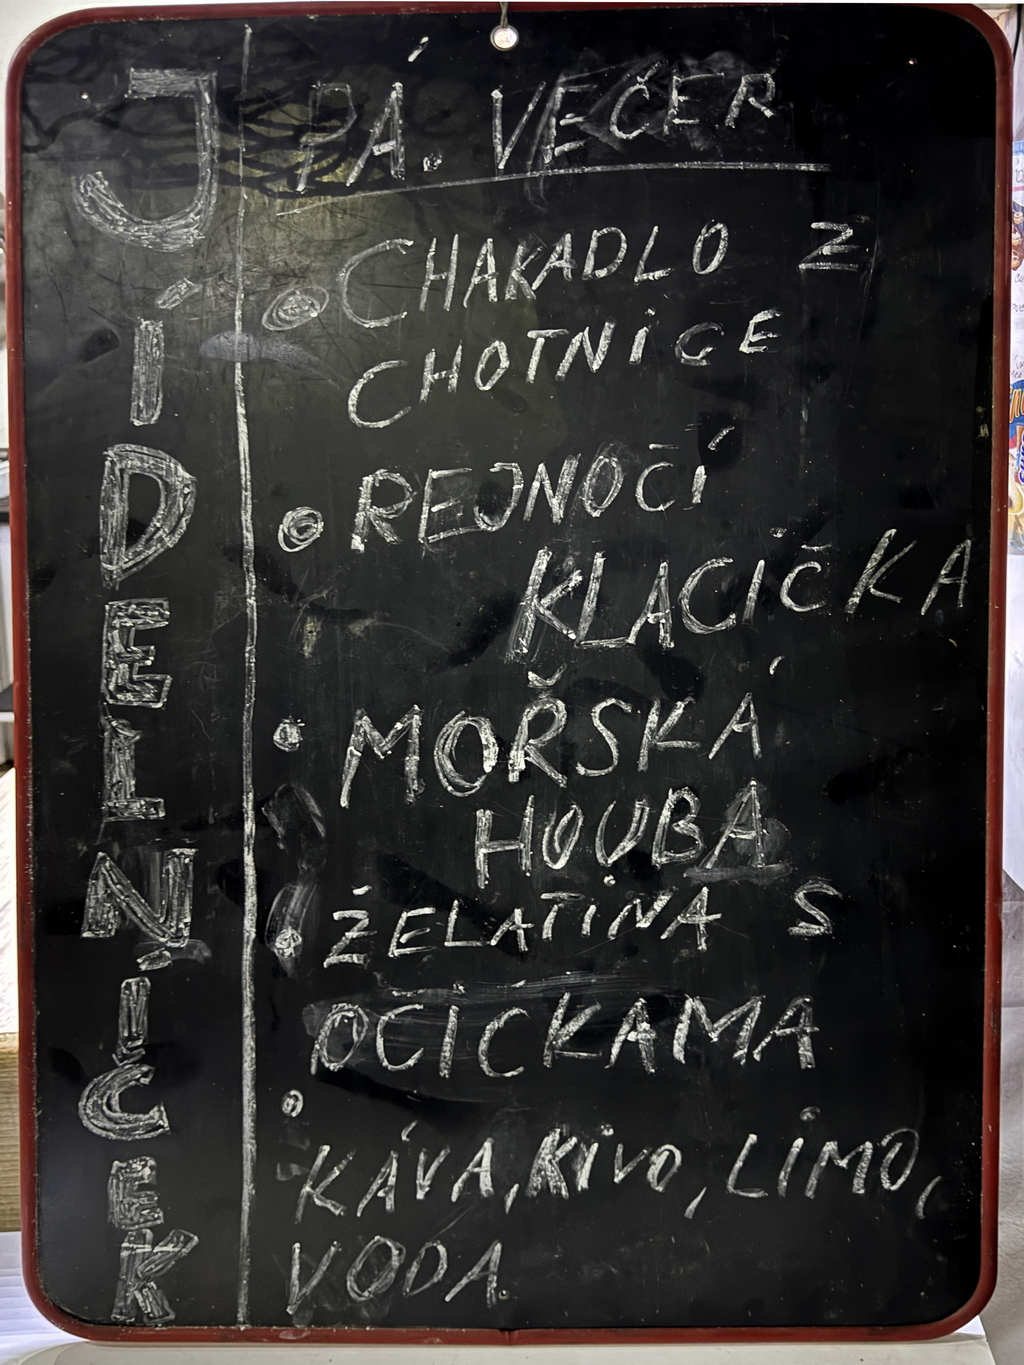 JÍDELNÍČEK
PÁ. VEČER
• CHAKADLO Z
CHOTNICE
• REJNOČÍ
KLACIČKA
• MOŘSKÁ
HOUBA
• ŽELATINA S
OČIČKAMA
• KÁVA, KIVO, LIMO,
VODA.